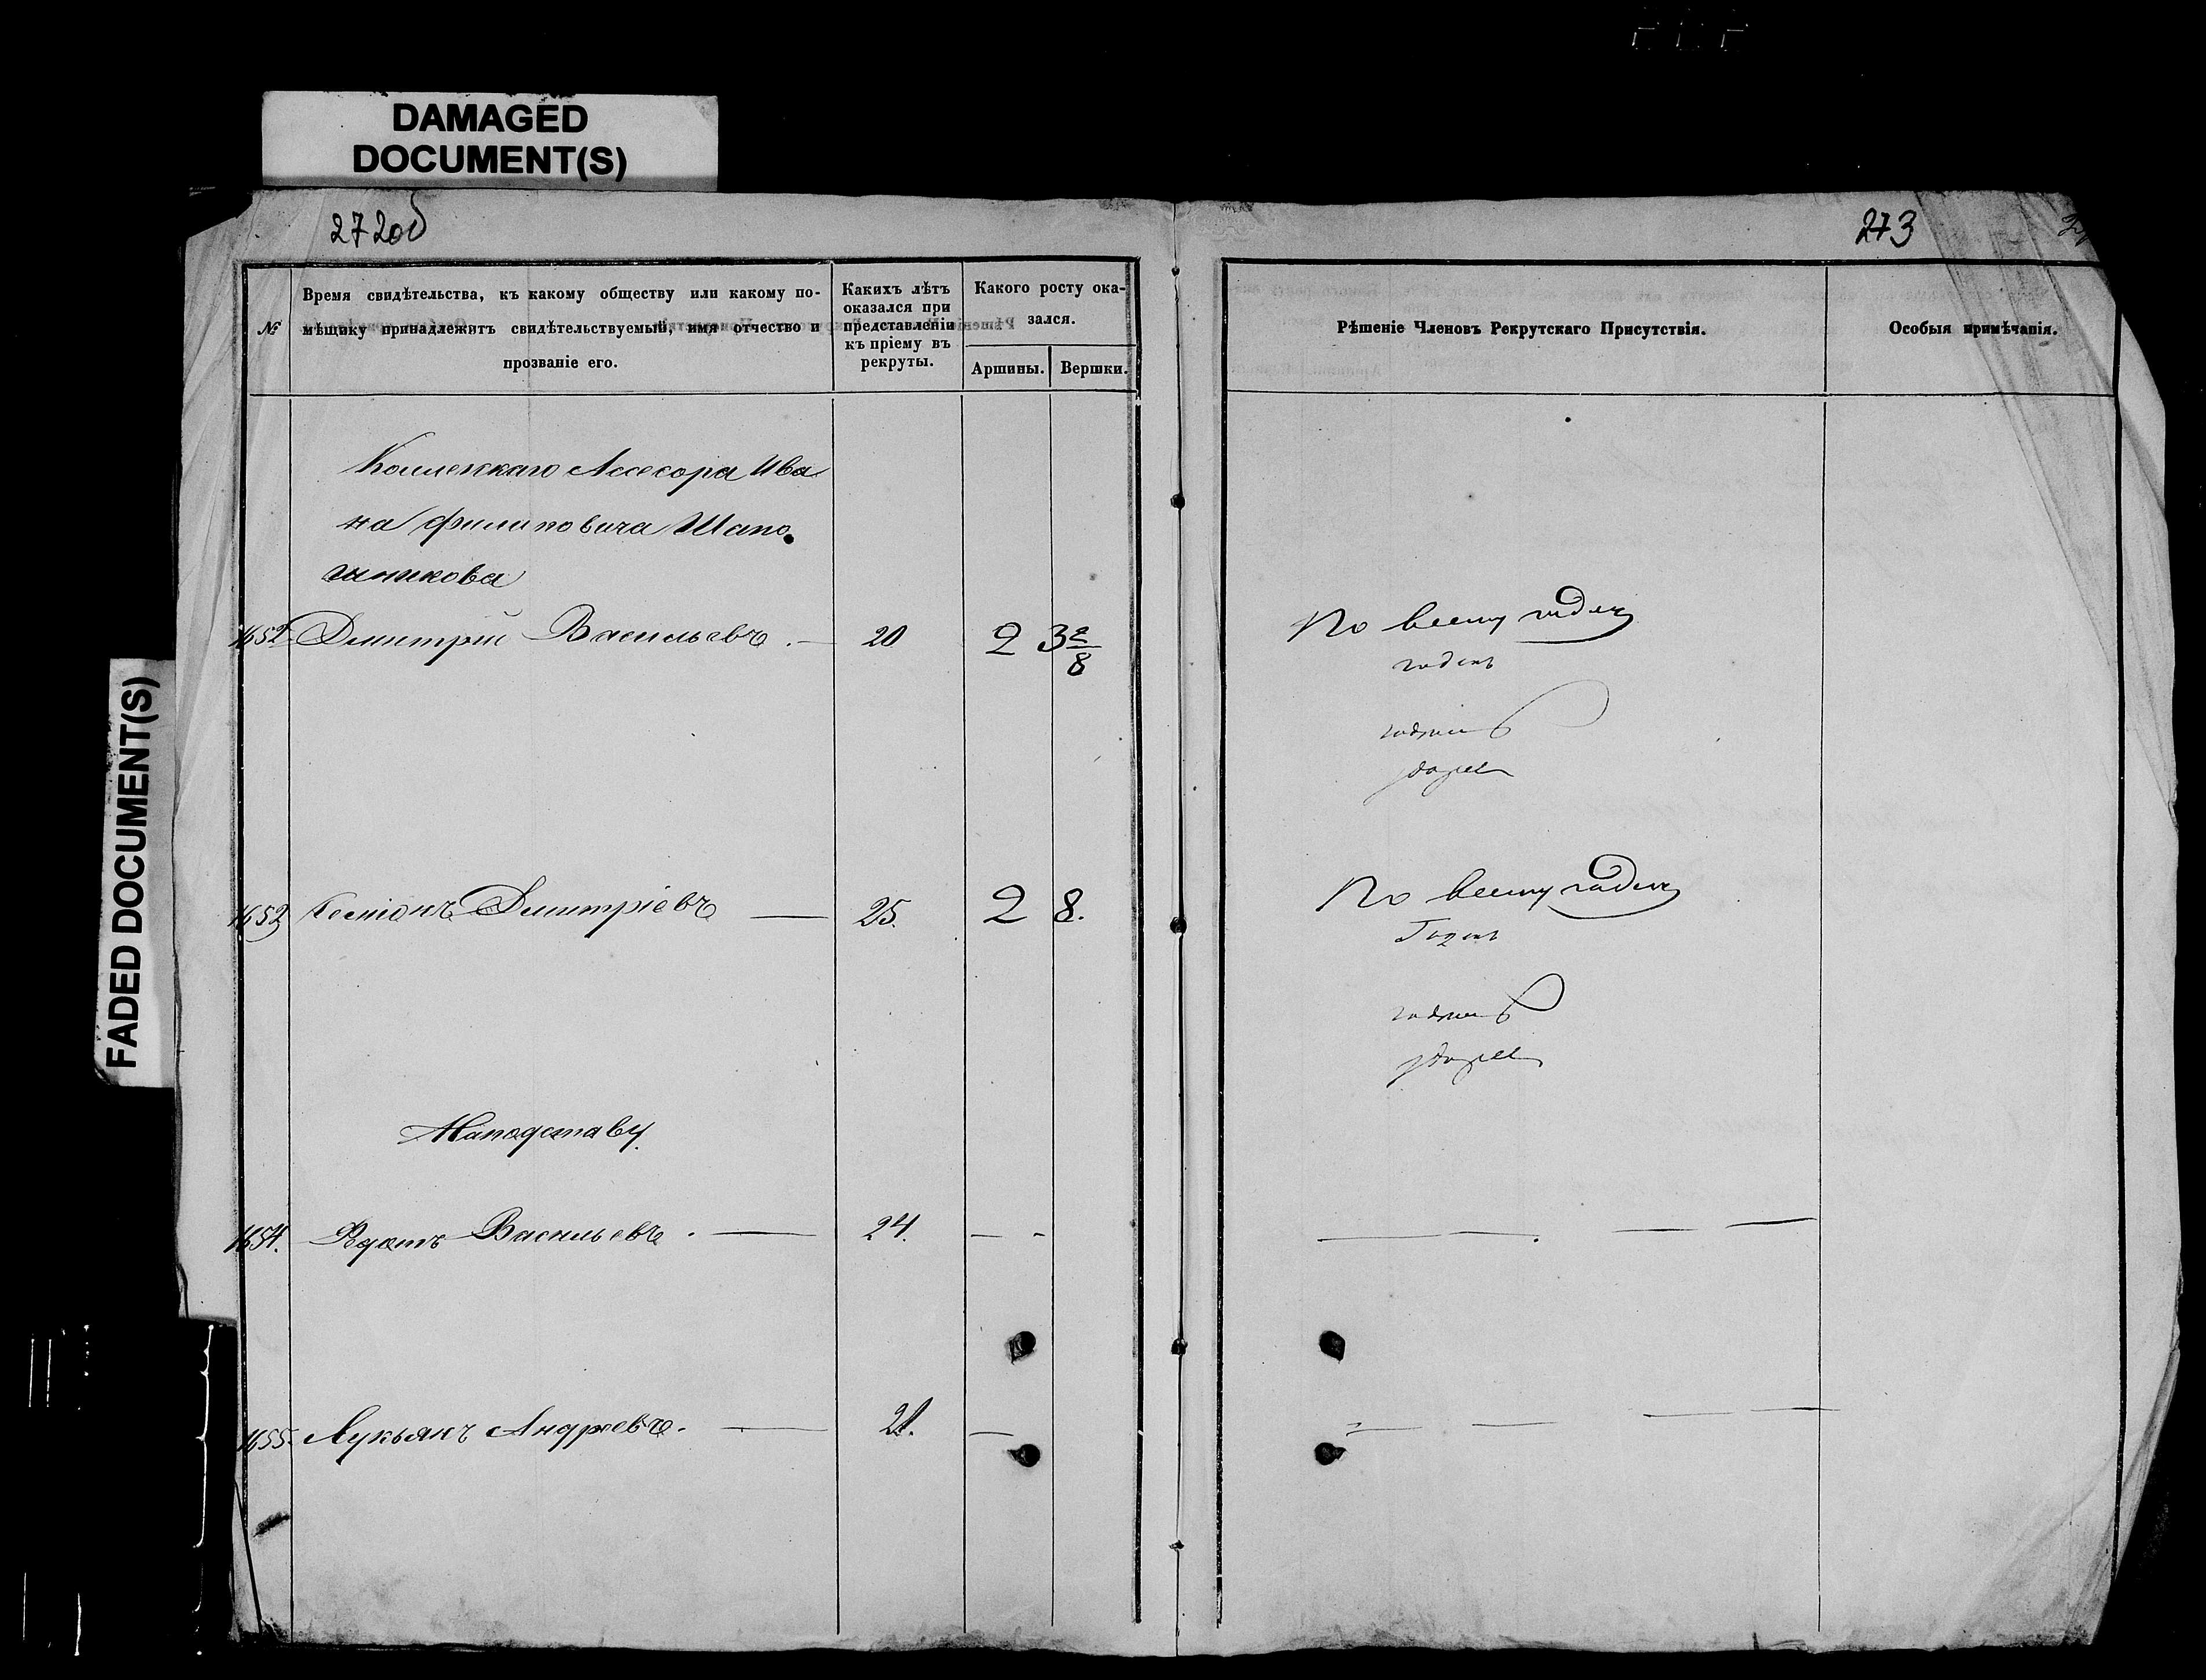 DAMAGED
DOCUMENT(S)
FADED DOCUMENT(S)
272об
273
№
Время свидѣтельства, къ какому обществу или какому по-
мѣщику принадлежитъ свидѣтельствуемый, имя отчество и
прозваніе его.
Какихъ лѣтъ
оказался при
представленіи
къ пріему въ
рекруты.
Какого росту ока-
зался.
Аршины. Вершки.
Рѣшеніе Членовъ Рекрутскаго Присутствія.
Особыя примѣчанія.
Коллежскаго Ассесора Ива
на Филиповича Шапо
шникова
1652 Дмитрій Васильевъ. — 20 2 3 2/8
По всему годенъ
годенъ
годенъ
1653 Дмитріевъ — 25. 2 8.
По всему годенъ
Годенъ
годенъ
Наподставу.
1654. Ѳедотъ Васильевъ. — 24. — -
1655. Лукьянъ Андреевъ. — 21. —